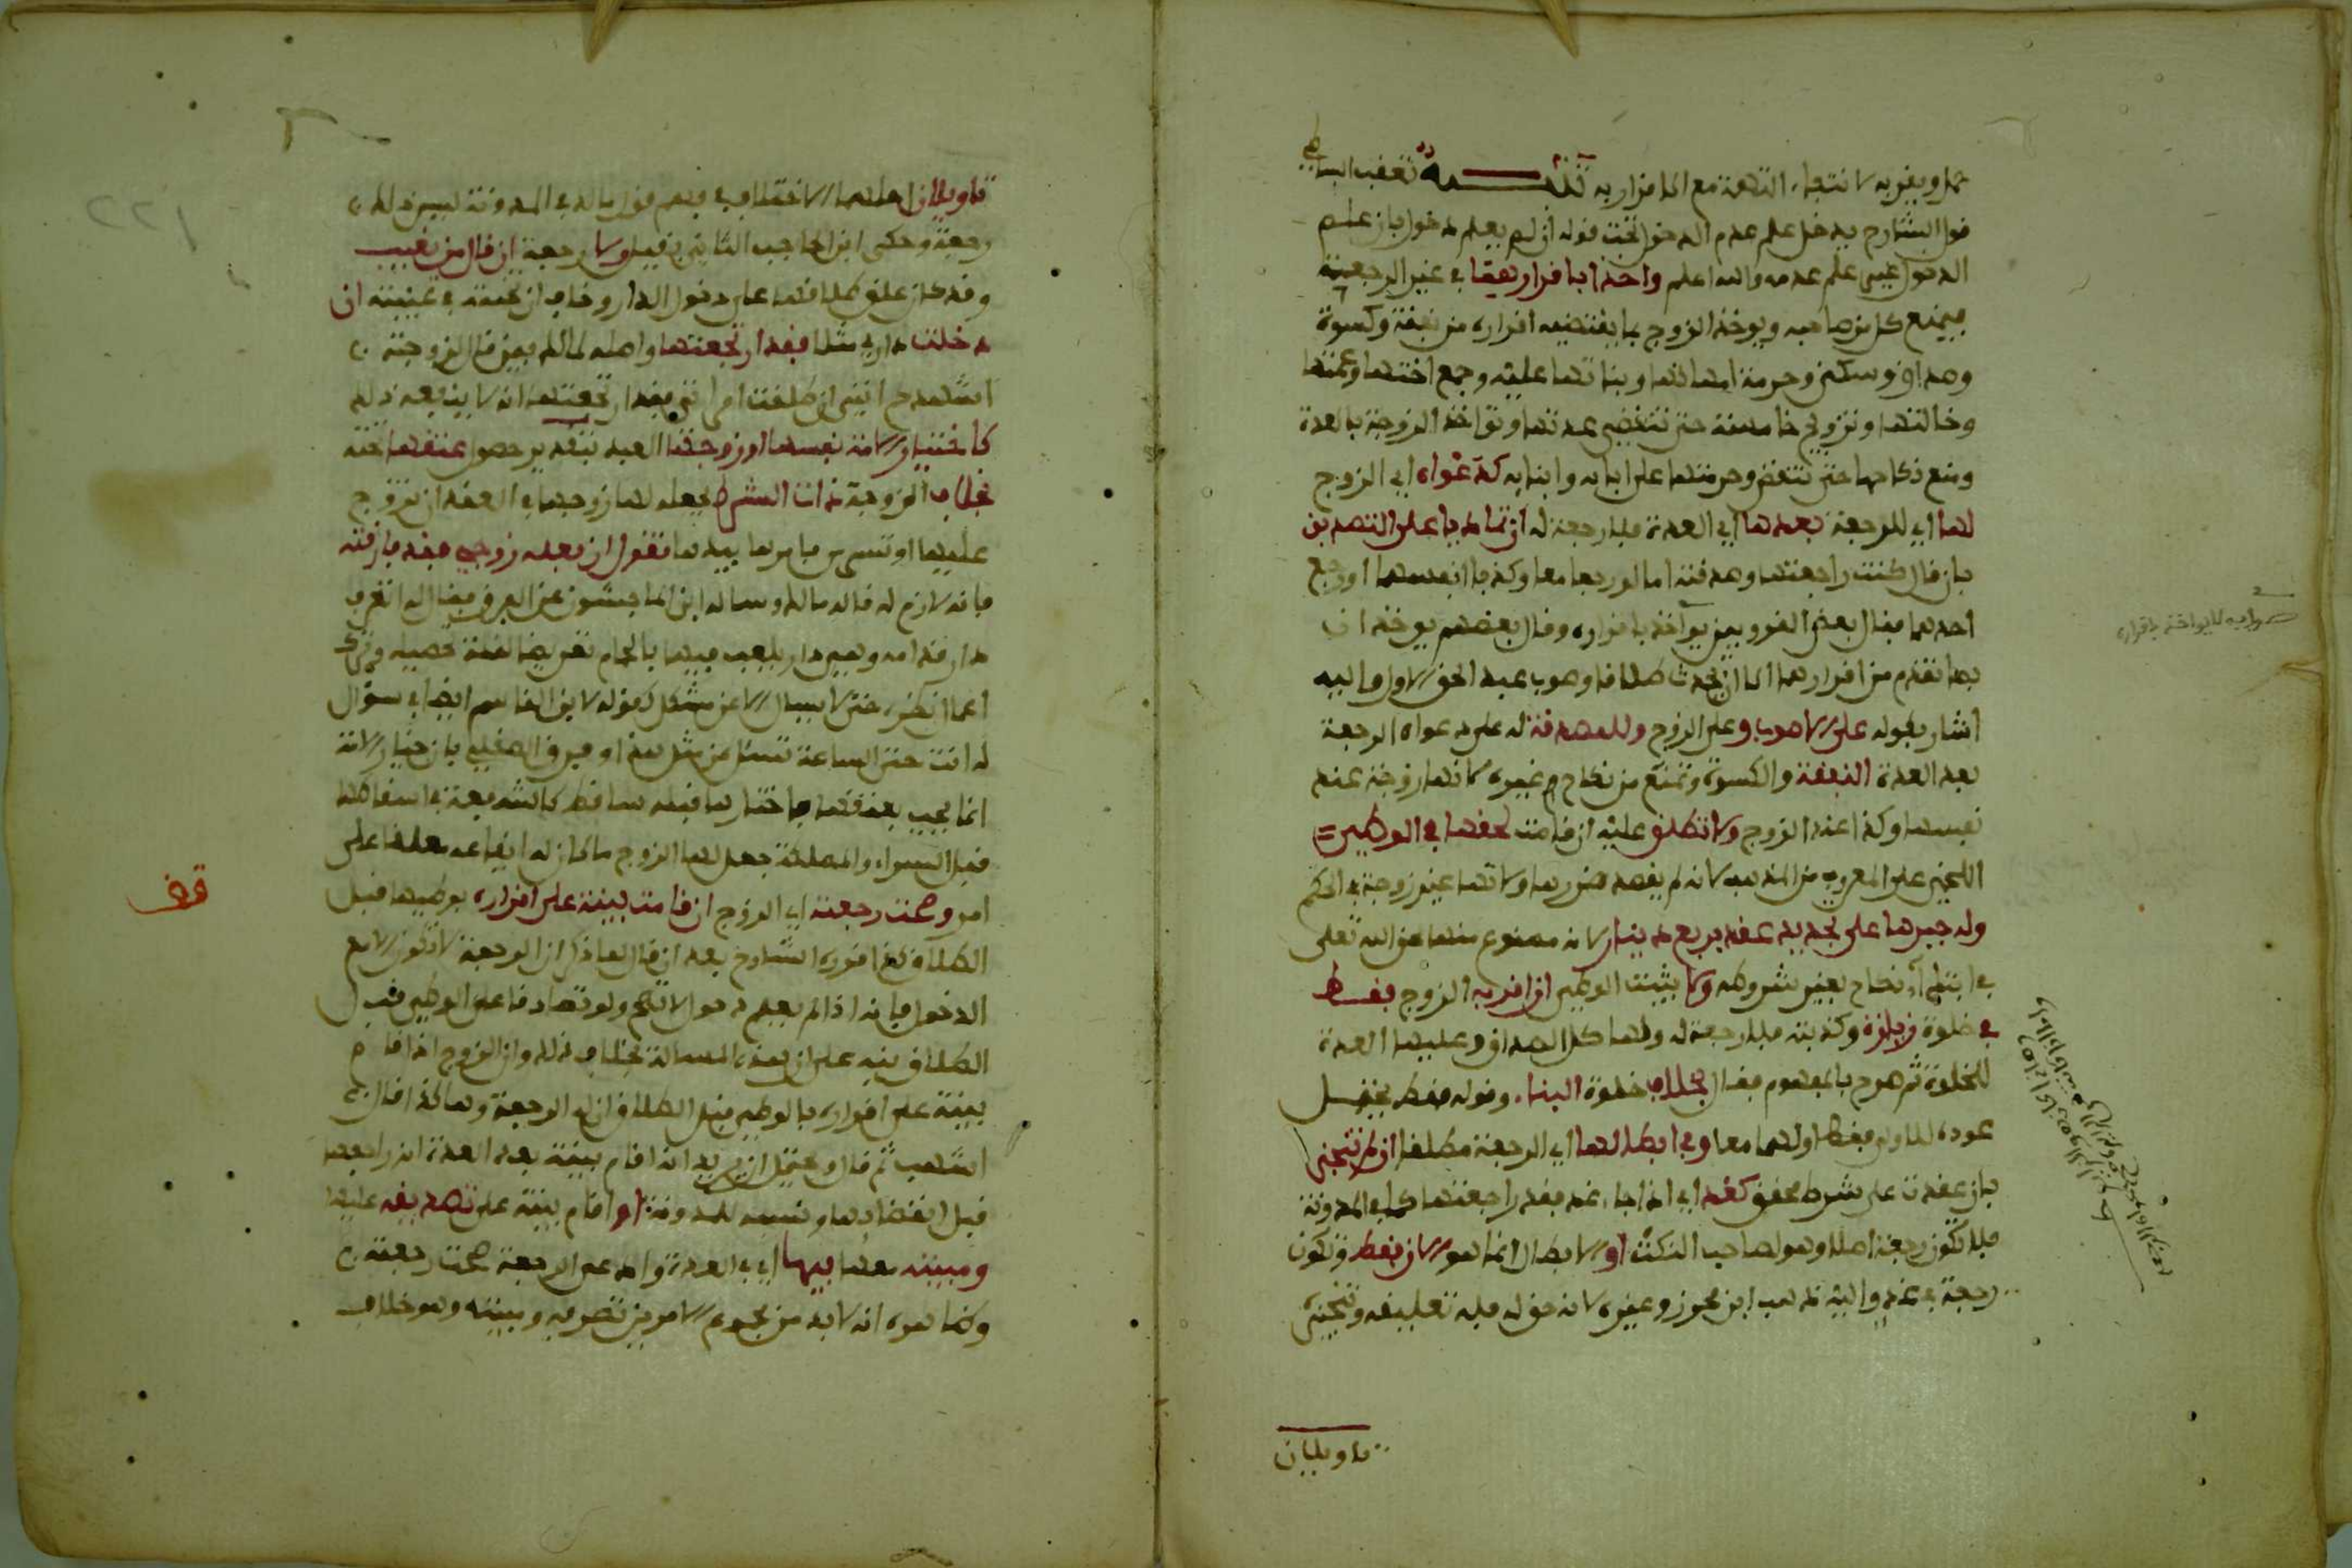 حمل ويقر به لانتفاء التهمة مع الاقرار به تنبيه تعقب البساطي
قول الشارح يدخل علم عدم الدخول تحت قوله ان لم يعلم دخول بان علم
الدخول غير علم عدمه والله اعلم واخذا باقرارهما اي غير الرجعية
فيمنع كل من صاحبه ويوخذ الزوج بما يقتضيه اقراره من نفقة وكسوة
وصداق وسكنى وحرمة امهاتها وبناتها عليه وجمع اختها وعمتها
وخالتها وتزويج خامسة حتى تنقضي عدتها وتواخذ الزوجة بالعدة
ومنع نكاحها حتى تنقضي وحرمتها على ابايه وابنايه كدعواه اي الزوج
لها اي للرجعة بعدها اي العدة فلا رجعة له ان تماديا على التصديق
بان قال كنت راجعتها وصدقته اما لو رجعا معا وكذبا انفسهما او رجع
احدهما فقال بعض القرويين يواخذ باقراره وقال بعضهم يوخذ ان
بما تقدم من اقرارهما الا ان يحدث طلاقا وصوب عبد الحق الاول واليه
اشار بقوله على الاصوب وعلى الزوج وللمصدقة له على دعواه الرجعة
بعد العدة النفقة والكسوة وتمنع من نكاح غيره لانها زوجة عند
نفسها وكذا عند الزوج ولا تطلق عليه ان قامت لحقها في الوطئ
اللخمي على المعروف من المذهب لانه لم يقصد ضررها ولانها غير زوجة في الحكم
وله جبرها على تجديد عقد بربع دينار لانه ممنوع منها لحق الله تعلى
في ابتداء نكاح بغير شروطه ولا يثبت الوطئ ان اقر به الزوج فقط
في خلوة زيارة وكذبته فلا رجعة له ولها كل الصداق وعليها العدة
للخلوة ثم صرح بالمفهوم فقال بخلاف خلوة البناء وقوله فقط يحتمل
عوده للاول فقط او لهما معا وفي ابطالها اي الرجعة مطلقا ان لم تنجز
بان عقدت على شرط محقق كغد اي اذا جاء غد فقد راجعتها كما في المدونة
فلا تكون رجعة اصلا وهو لصاحب النكت او الابطال انما هو الان فقط وتكون
رجعة في غد واليه ذهب ابن محرز وغيره لانه حق له فله تعليقه وتنجيزه
تاويلان
صوابه لا يواخذ باقراره
تاويلان اصلهما الاختلاف في فهم قول مالك في المدونة ليس ذلك
رجعة وحكى ابن الحاجب الثاني بقيل ولا رجعة ان قال من يغيب
وقد كان علق طلاقها على دخول الدار وخاف ان تحنثه في غيبته ان
دخلت داري مثلا فقد ارتجعتها واصله لمالك فيمن قال لزوجته
اشهدكم انني ان طلقت امراتي فقد ارتجعتها انه لا ينفعه ذلك
كاختيار الامة نفسها او زوجها العبد بتقدير حصول عتقها تحته
بخلاف الزوجة ذات الشرط يجعله لها زوجها في العقد ان تزوج
عليها او تسرى فامرها بيدها تقول ان فعله زوجي فقد فارقته
فانه لازم له قاله مالك وساله ابن الماجشون عن الفرق فقال له اتعرف
دار قدامه وهي دار يلعب فيها بالحمام تعريضا لقلة تحصيله وترك
اعمال نظره حتى لا يسال الا عن مشكل كقوله لابن القاسم ايضا في سؤال
له انت حتى الساعة تسئل عن مثل هذا وفرق الصقلي بان خيار الامة
انما يجب بعتقها فاختيارها قبله ساقط كالشفعة في اسقاطها
قبل الشراء والمملكة جعل لها الزوج ما كان له ايقاعه معلقا على
امر وصحت رجعته اي الزوج ان قامت بينة على اقراره بوطئها قبل
الطلاق كذا قوره الشارح بعد ان قال لما ذكر ان الرجعة لا تكون الا مع
الدخول فانه اذا لم يعلم دخول لا تصح ولو تصادقا على الوطئ قبل
الطلاق نبه على ان هذه المسالة بخلاف ذلك وان الزوج اذا اقام
بينة على اقراره بالوطئ قبل الطلاق ان له الرجعة وهاكذا قال
اشهب ثم قال ويحتمل ان يريد انه اقام بينة بعد العدة انه راجعها
قبل انقضائها ونسبه للمدونة او اقام بينة على تصرفه عليها
ومبيته معها فيها اي في العدة وادعى الرجعة صحت رجعته
وظاهره انه لا بد من مجموع الامرين تصرفه ومبيته وهو خلاف
قف
١٢٢